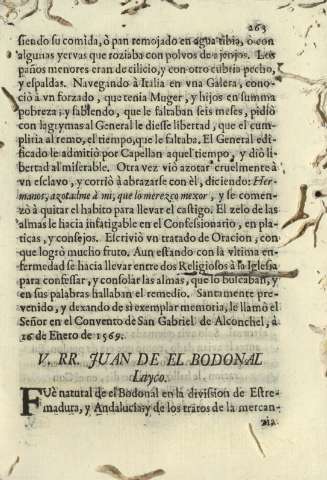 263
siendo su comida, ò pan remojado en agua tibia, ò con
algunas yervas que roziaba con polvos de axenjos. Los
paños menores eran de cilicio, y con otro cubria pecho,
y espaldas. Navegando à Italia en vna Galera, cono-
ciò à vn forzado, que tenia Muger, y hijos en summa
pobreza; y sabiendo, que le faltaban seis meses, pidiò
con lagrymas al General le diesse libertad, que el cum-
pliria al remo, el tiempo, que le faltaba. El General edi-
ficado le admitiò por Capellan aquel tiempo, y diò li-
bertad al miserable. Otra vez viò azotar cruelmente à
vn esclavo, y corriò à abrazarse con èl, diciendo: Her-
manos, azotadme à mi, que lo merezco mexor, y se comen-
zò à quitar el habito para llevar el castigo. El zelo de las
almas le hacia infatigable en el Confessionario, en pla-
ticas, y consejos. Escriviò vn tratado de Oracion, con
que logrò mucho fruto. Aun estando con la vltima en-
fermedad se hacia llevar entre dos Religiosos à la Iglesia
para confessar, y consolar las almas, que lo buscaban, y
en sus palabras hallaban el remedio. Santamente pre-
venido, y dexando de sì exemplar memoria, le llamò el
Señor en el Convento de San Gabriel de Alconchel, à
26 de Enero de 1569.
V. RR. JUAN DE EL BODONAL
Layco.
FUè natural de el Bodonal en la division de Estre-
madura, y Andalucia; y de los tratos de la mercan-
zia